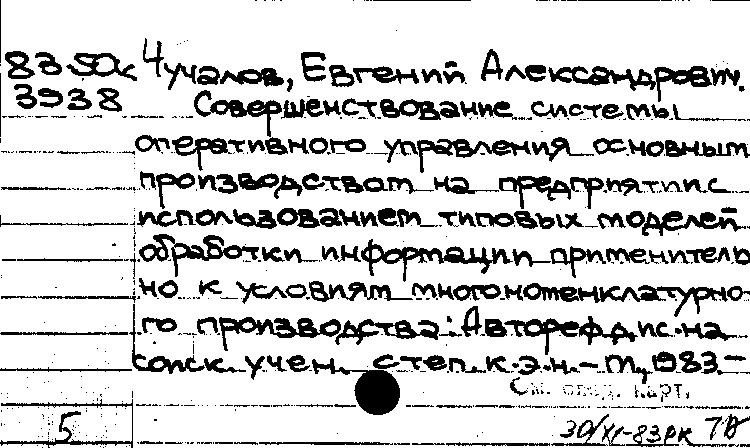 83-50к Чучалов, Евгений Александрович.
3938 Совершенствование системы
оперативного управления основным
производством на предприятии с
использованием типовых моделей
обработки информации применитель
но к условиям многономенклатурно-
го производства: Автореф. дис. на
соиск. учен. степ. к.э.н. – М., 1983. –
См. след. карт.
5 30/XI-83РК